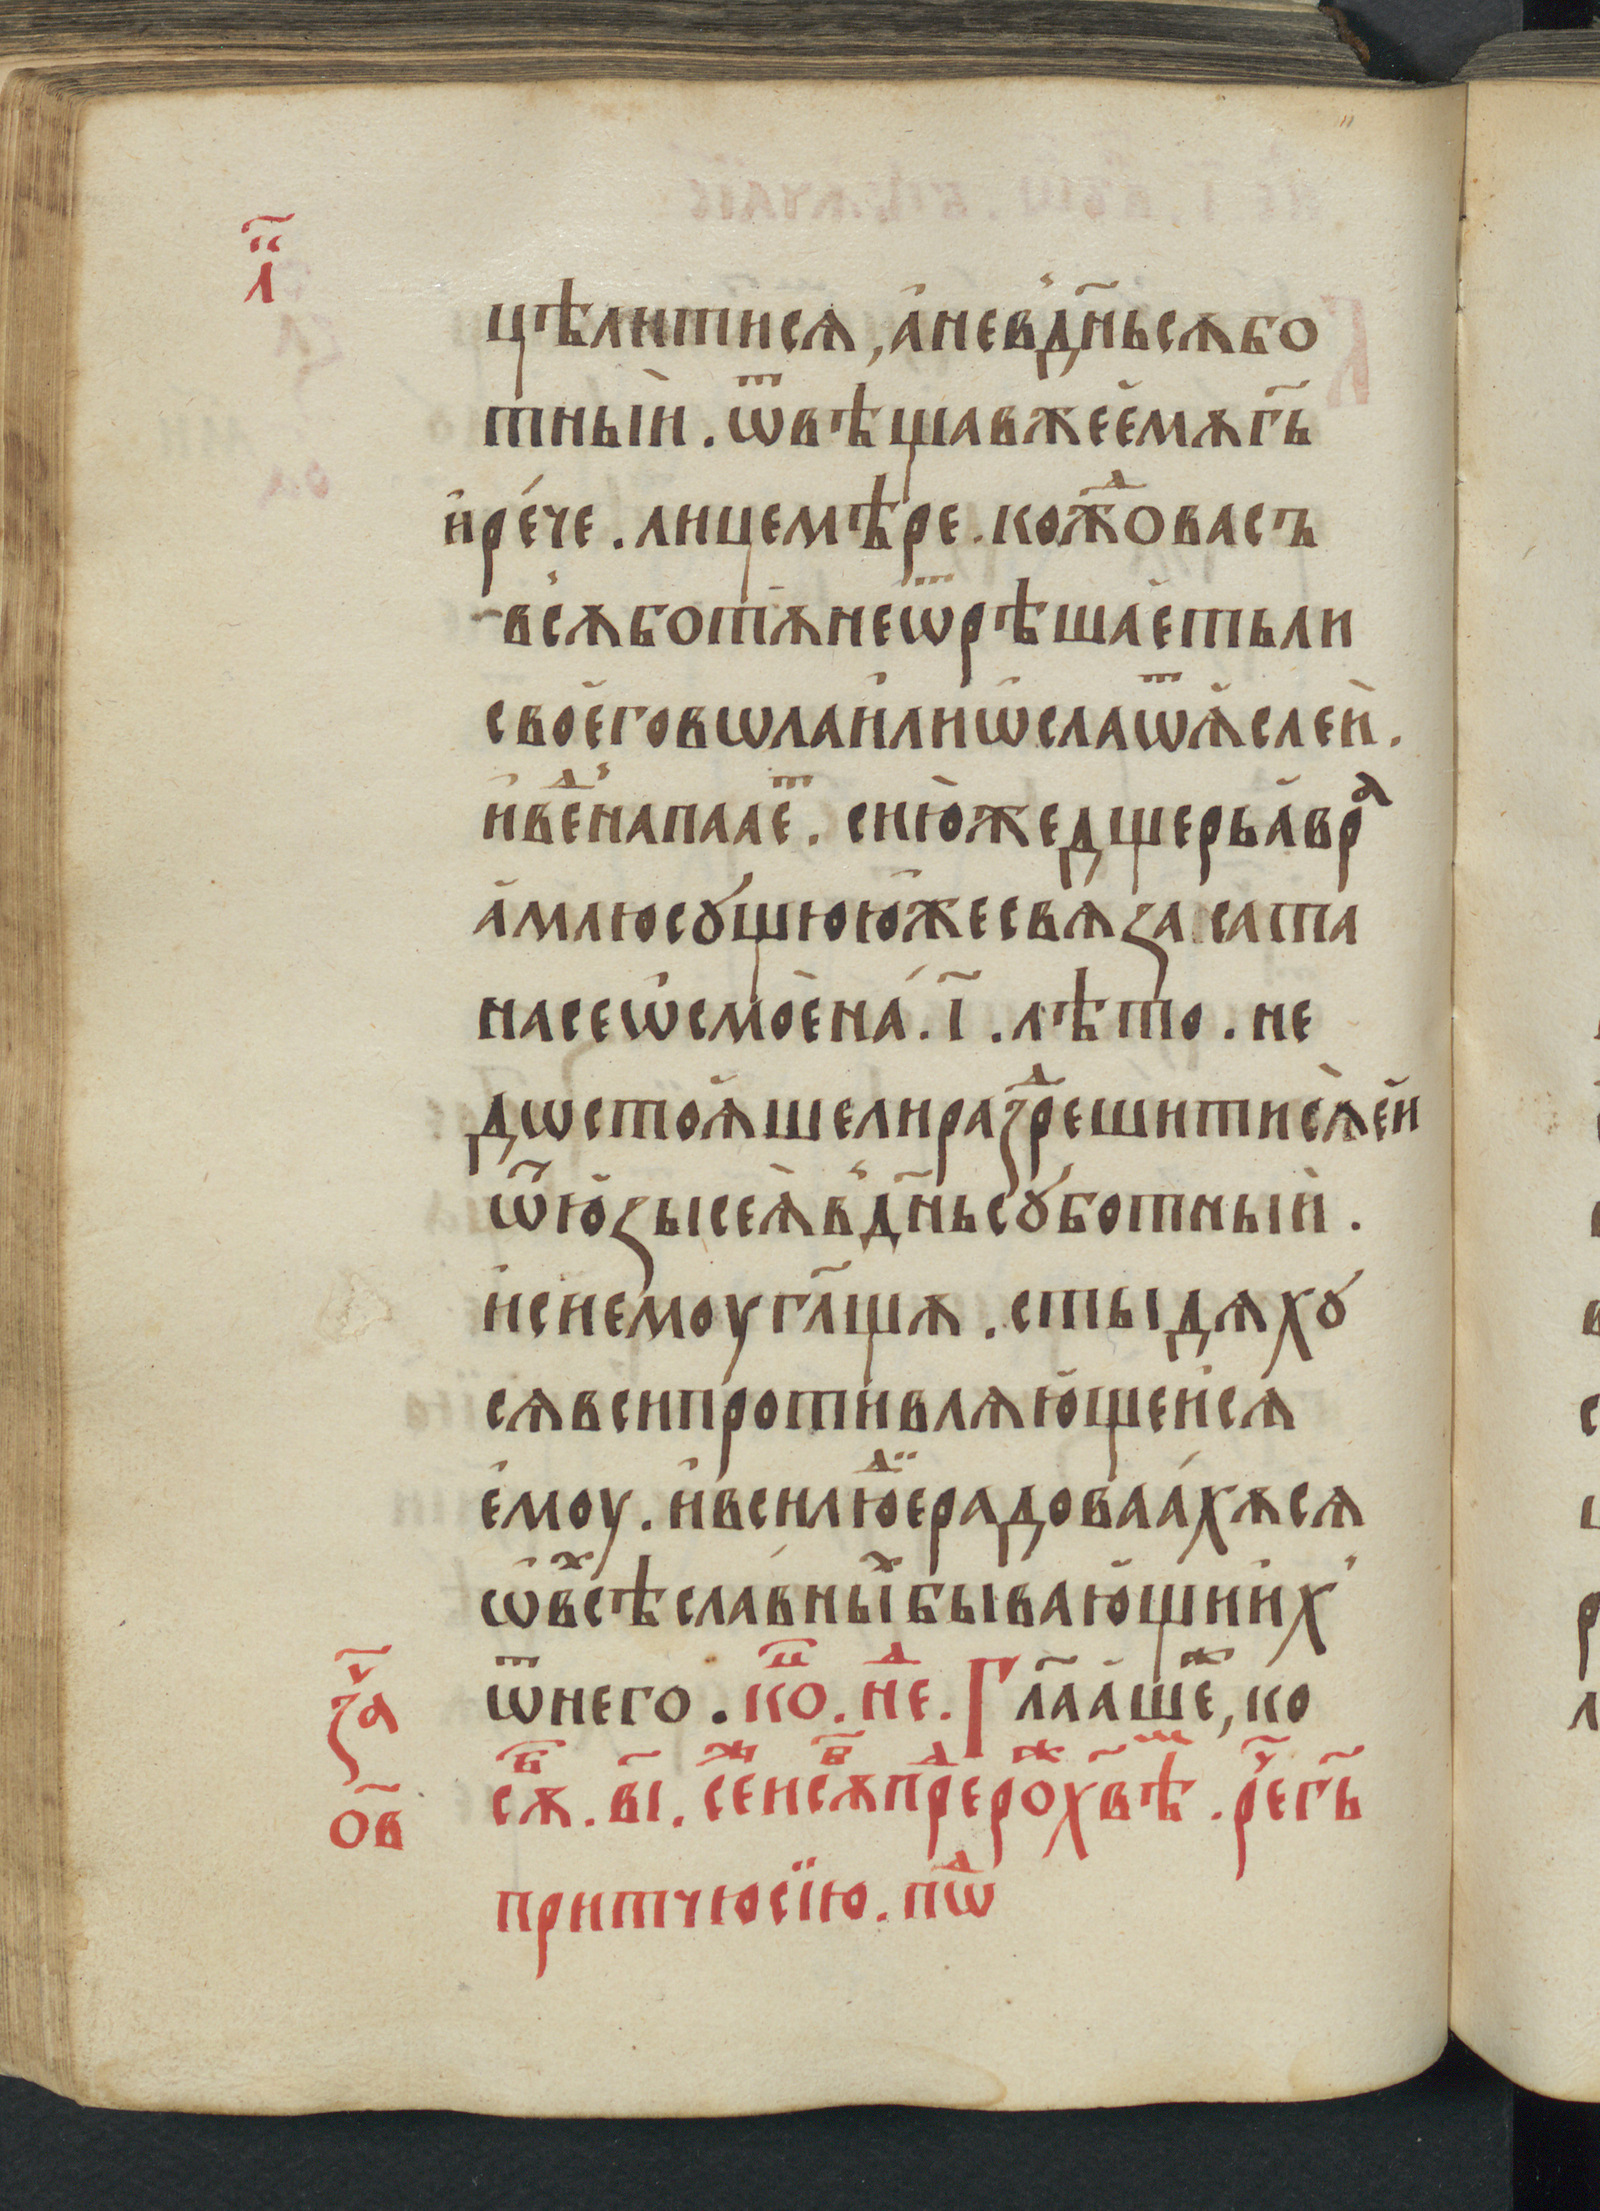 л҃
цѣлитисѧ, а҆невдн҃ьсѫбо
тныи. ѿвѣщавжеемѫг҃ь
ирече. лицемѣре. кождоовасъ
всѫботѫнеѿрѣшаетьли
своеговѡлаилиѡслаѿꙗслеи.
иведнапааеть. сиюжедщерьавра
амлюсꙋщююжесвѧꙁасата
насеѡсмоена. і҃. лѣто. не
дѡстоꙗшелираздрешитисѧеи
ѿюꙁысеꙗвдн҃ьсꙋботныи.
исиемоугл҃щѫ. стыдѧхꙋ
сѧвсипротивлѧющеисѧ
емоу. ивсилюдїерадоваахѫсѧ
ѡвсѣхславныхбывающиих
ѿнего. коц. нед. Гл҃аащеж, ко
ꙁач҃
сѫб. в҃і. сеисѫпредрождхв҃ѣ. речег҃ь
о҃в
притчюсїю. подѡ